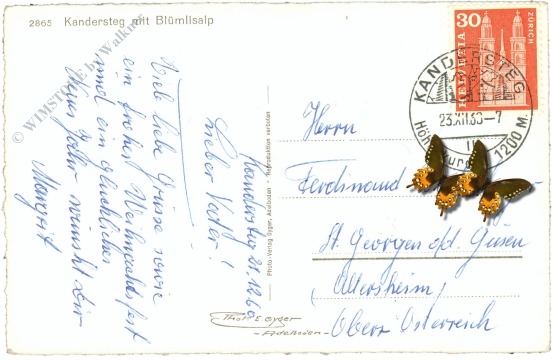 2865 Kandersteg mit Blümlisalp
© WIMSTORE by Walknar
Kandersteg 21.12.60
Lieber Vater!
Viele liebe Grüsse sowie
ein frohes Weihnachtsfest
und ein glückliches
Neues Jahr wünscht Dir
Margrit
Photo-Verlag Gyger, Adelboden Reproduktion verboten
Photo E Gyger
-Adelboden-
30
HELVETIA
ZÜRICH
KANDERSTEG
23.XII.60-7
1200 M.
Herrn
Ferdinand
St. Georgen a/d. Gusen
Oberr Österreich